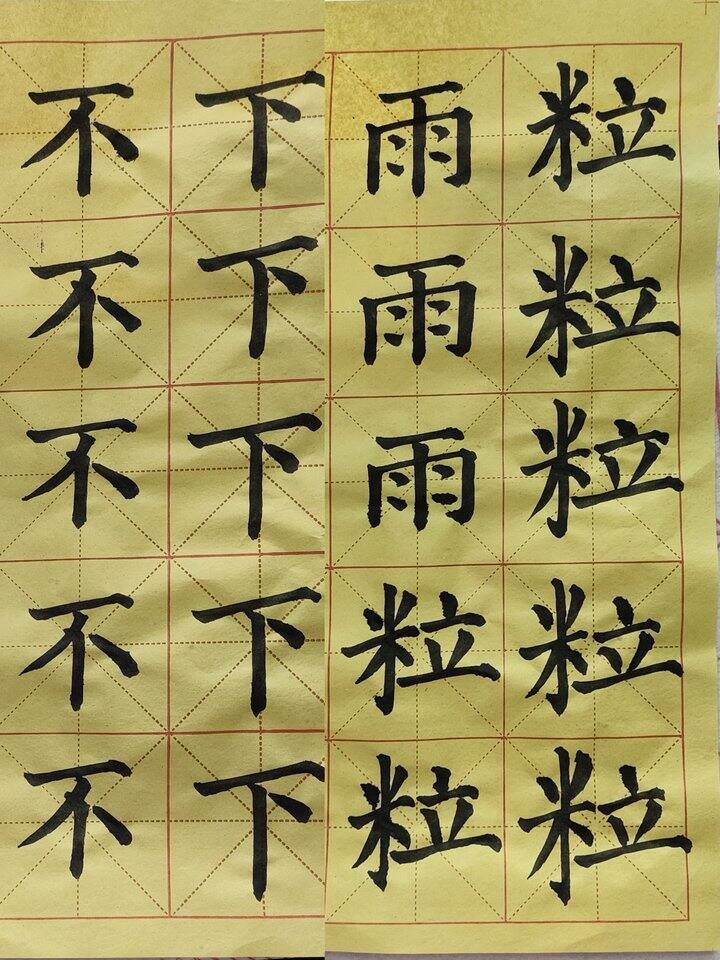 不下雨粒
不下雨粒
不下雨粒
不下粒粒
不下粒粒